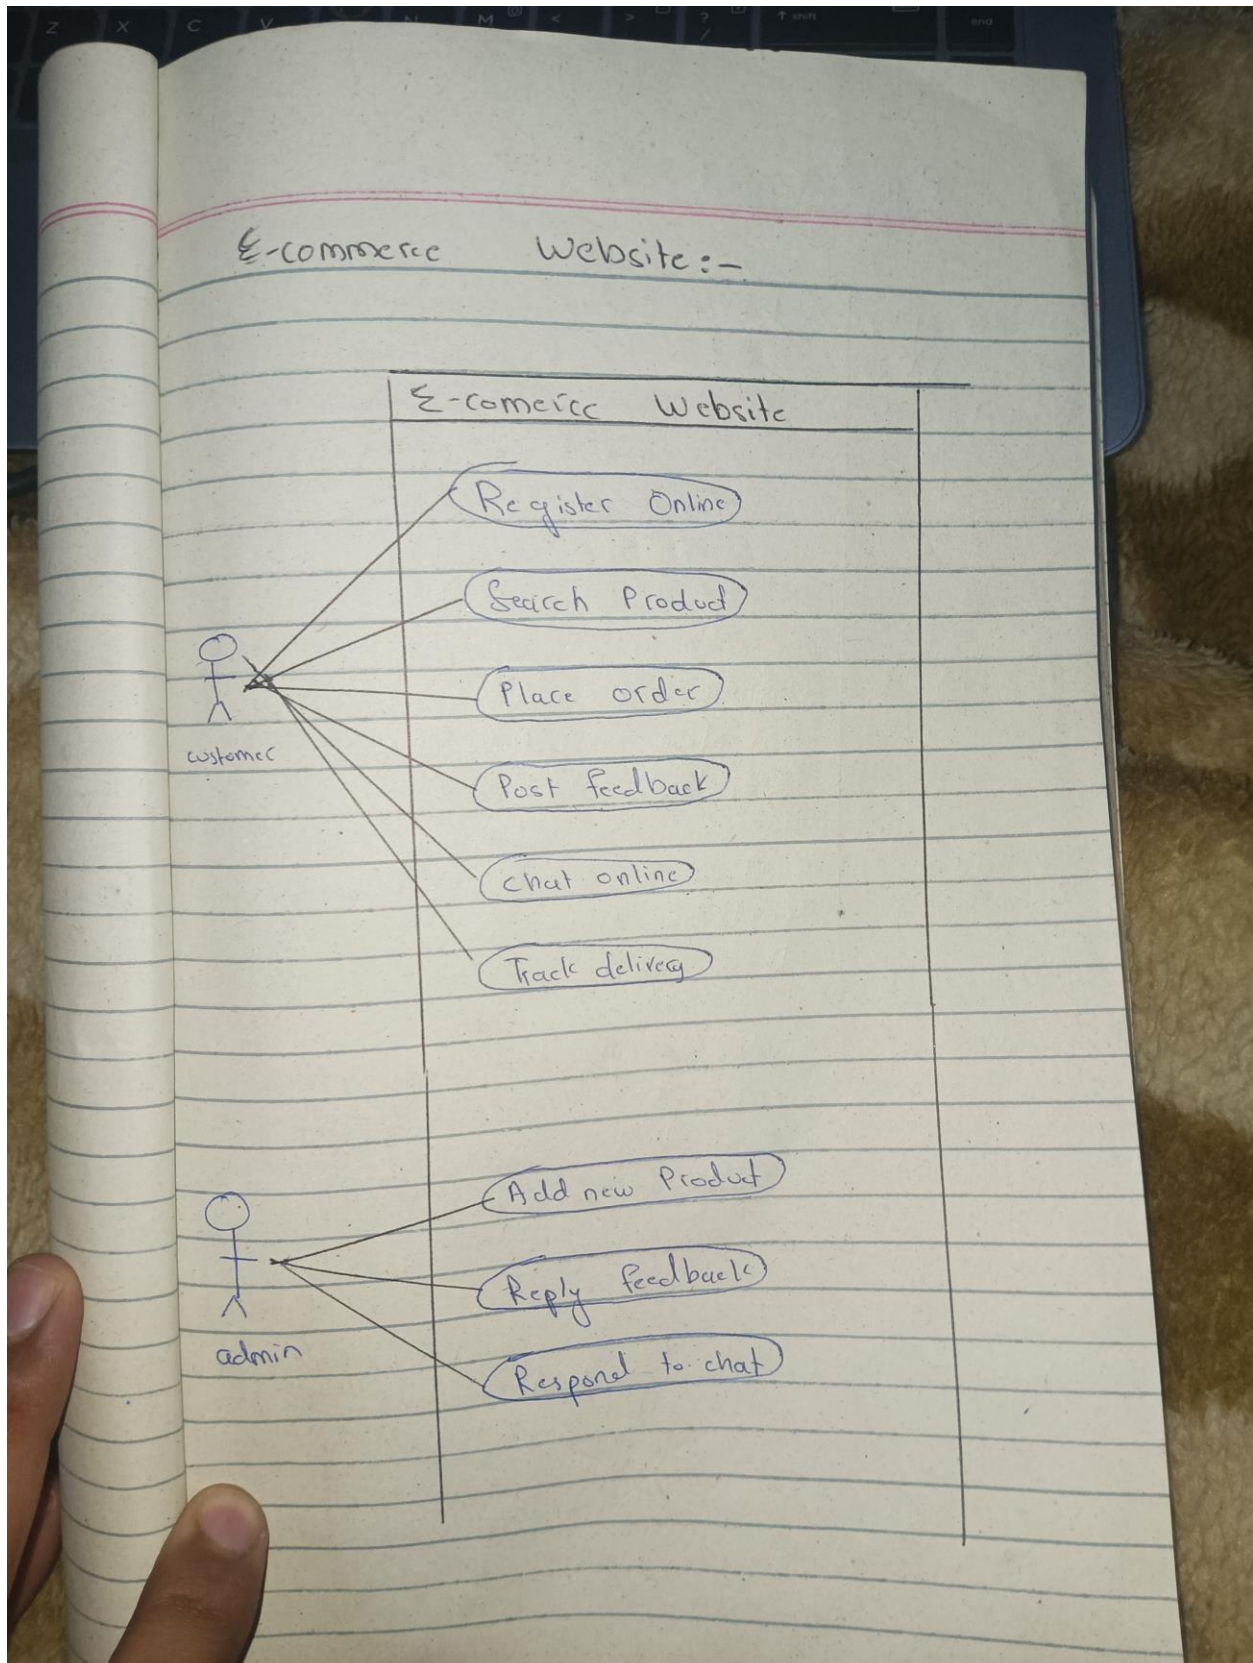 Z X C V N M < > ? / ↑ shift end
E-commerce Website:-
E-comerce Website
Register Online
Search Product
Place order
customer
Post feedback
chat online
Track delivery
Add new Product
Reply feedback
admin
Respond to chat